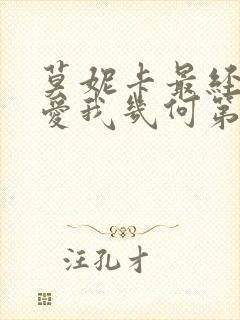 莫妮卡最经
爱我几何第
汪孔才